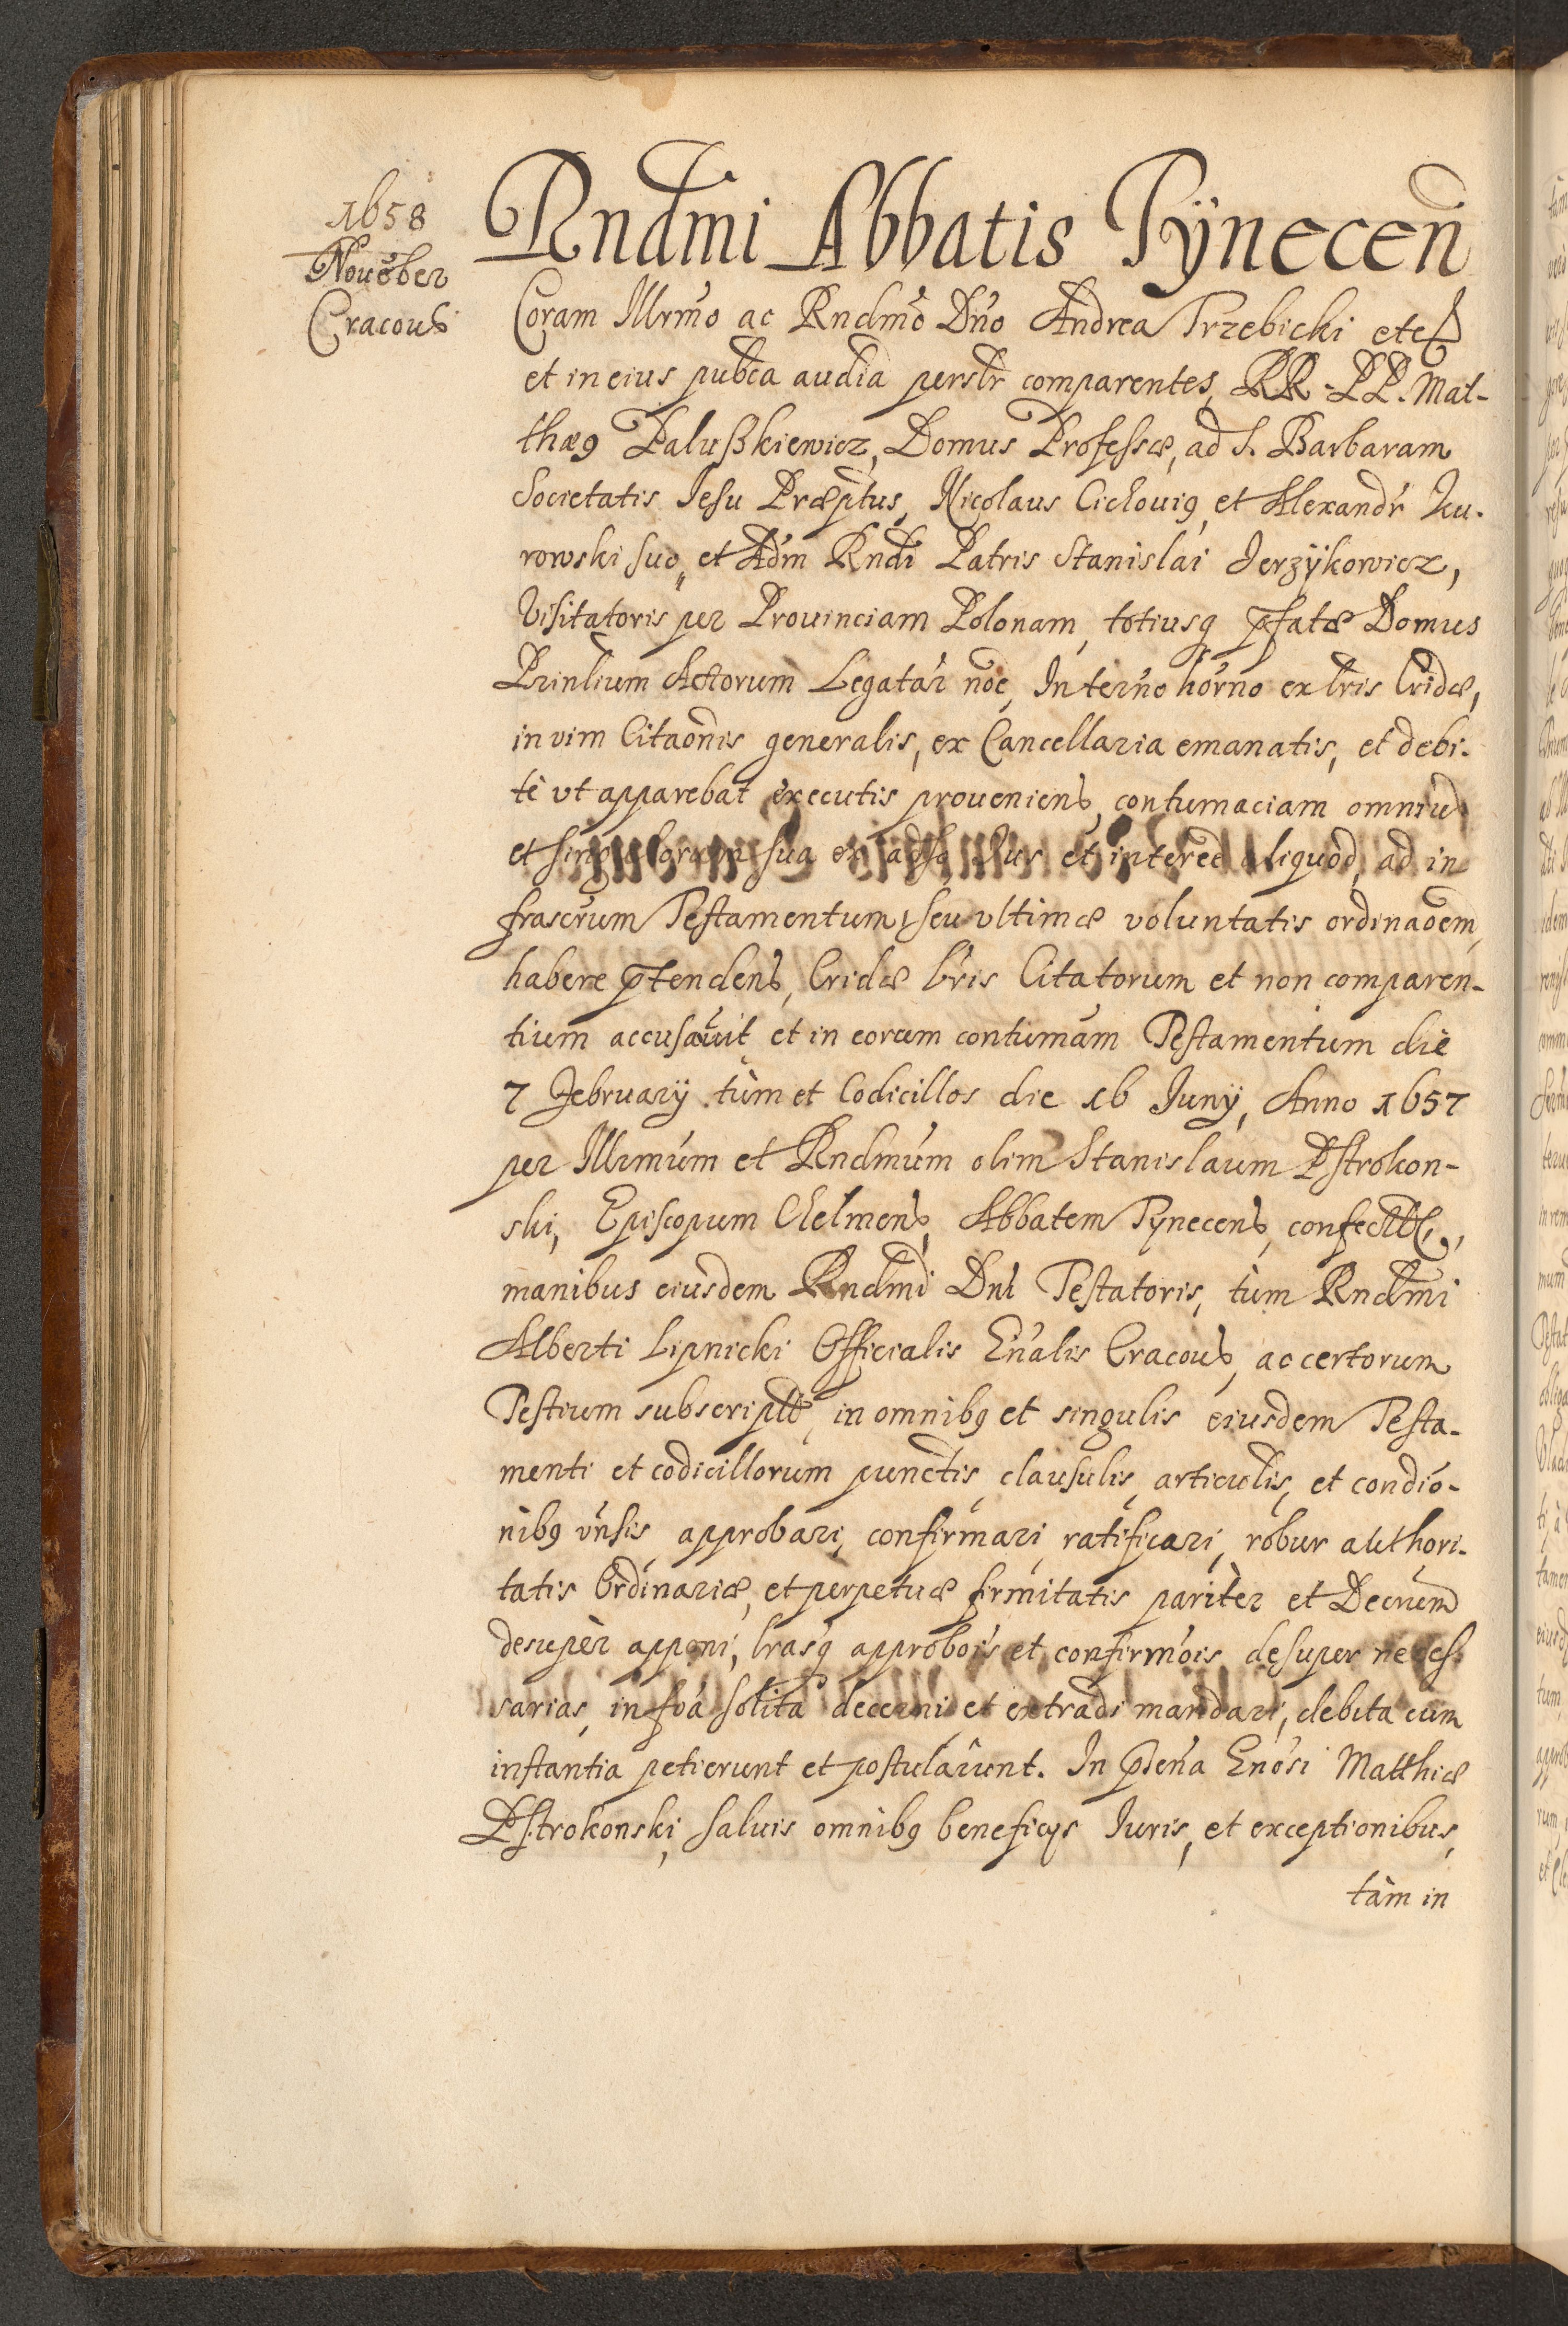 1658
Nouēber
Cracoue͂
Rndmi Abbatis Tÿnecen̄
Coram Illrmo ac Rndmo Dno Andrea Trzebicki etc
et in eius pubca audia perslr comparentes, RR. PP. Mat-
thæ9 Palußkiewicz, Domus Professæ, ad S. Barbaram
Societatis Iesu Præptus, Nicolaus Cichoui9, et Alexandr Ku-
rowski suo, et Adm Rndi Patris Stanislai Jerzÿkowicz,
Visitatoris per Prouinciam Polonam, totiusq pfatæ Domus
Prinlium Actorum Legatar noe, In terno horno ex lris Cridæ,
in vim Citaonis generalis, ex Cancellaria emanatis, et debi-
tè vt apparebat executis proueniens, contumaciam omniu
et singularum sua Ius et interee aliquod, ad in
frascrum Testamentum, seu vltimæ voluntatis ordinaoem,
habere ptendens, Cridæ lris Citatorum et non comparen-
tium accusauit et in eorum contumam Testamentum die
7 Februarÿ tùm et Codicillos die 16 Iunÿ, Anno 1657
per Illrmum et Rndmum olim Stanislaum Pstrokon-
ski, Episcopum Chelmens, Abbatem Tÿnecens, confect
manibus eiusdem Rndmi Dni Testatoris, tùm Rndmi
Alberti Lipnicki Officialis Gnalis Cracous, ac certorum
Testium subscript, in omnib9 et singulis eiusdem Testa-
menti et codicillorum punctis, clausulis, articulis, et condio-
nib9 vnsis approbari, confirmari, ratificari, robur authori-
tatis Ordinariæ, et perpetuæ firmitatis paritèr et Decrum
desupèr apponi, lrasq approbois et confirmois desuper neces-
sarias, in foa solita decerni et extradi mandari, debita cum
instantia petierunt et postularunt. In pnsena Gnosi Matthiæ
Pstrokonski, saluis omnib9 beneficys Iuris, et exceptionibus,
tàm in